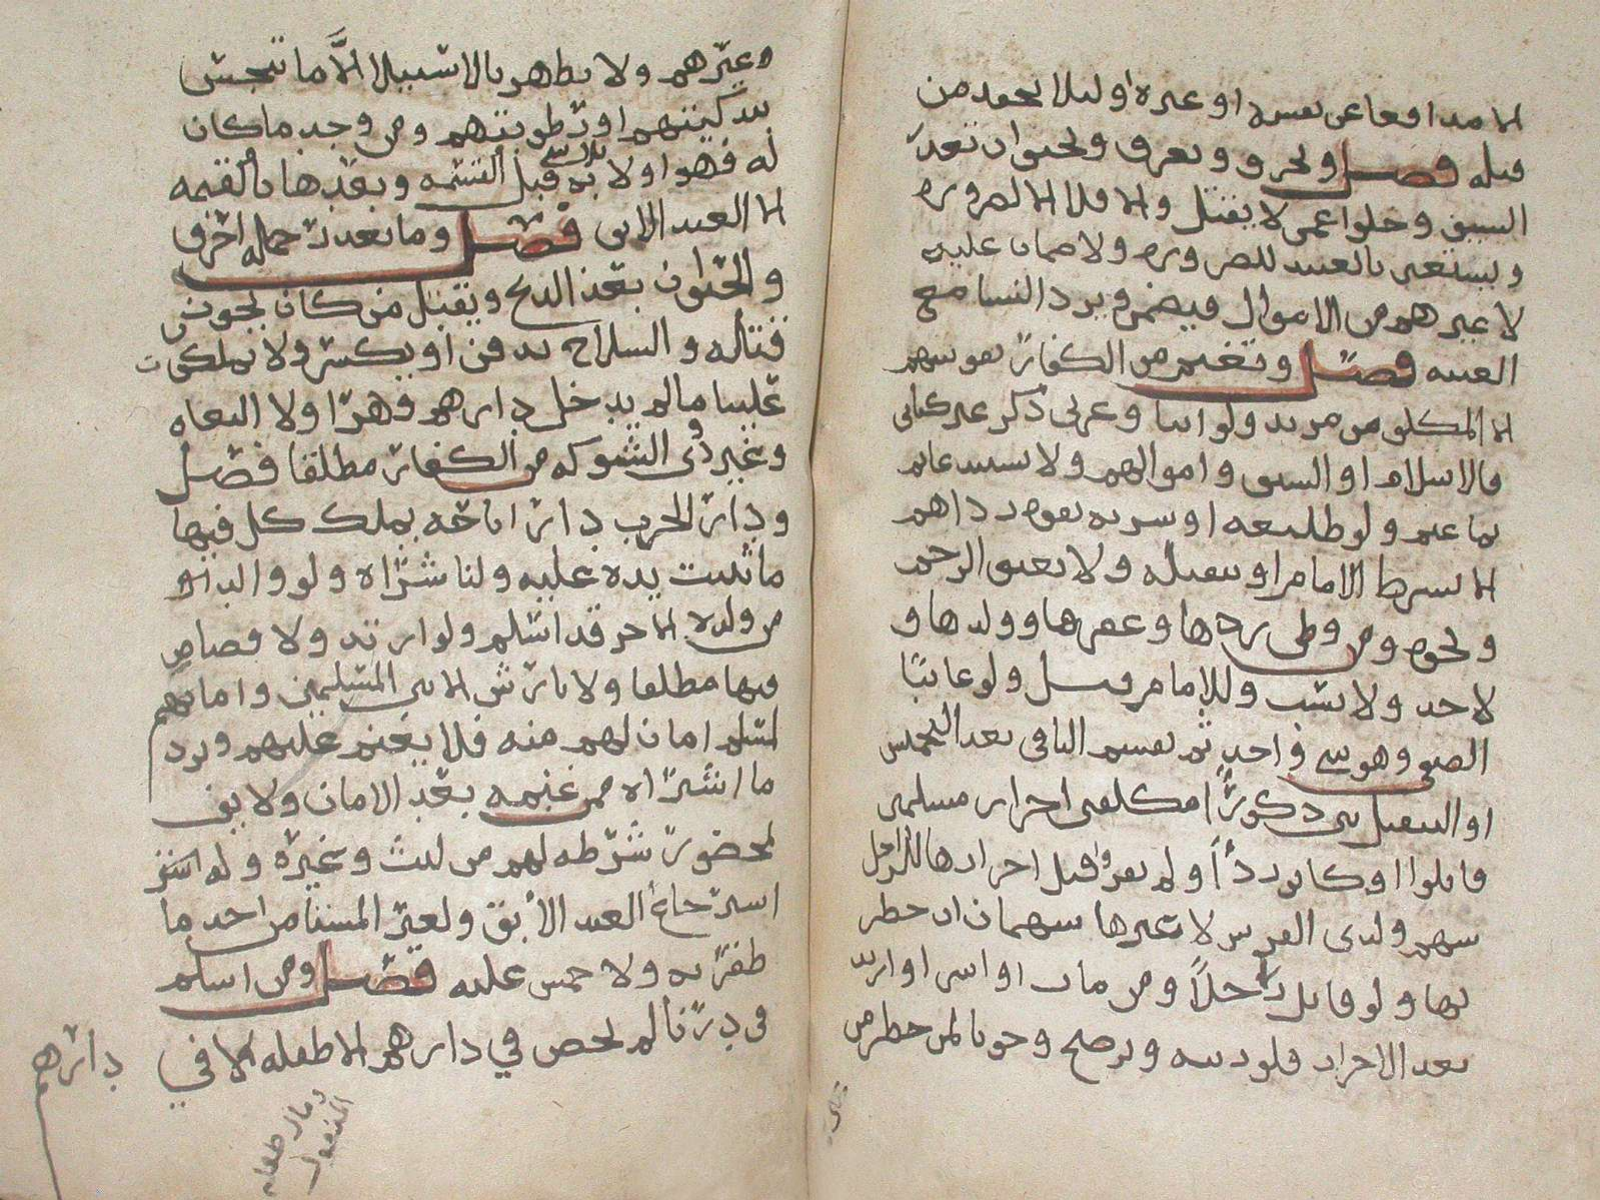 الا مدافعا عن نفسه او غيره او لئلا يحقد من
قبله فصل ويحرق ويغرق ويخنق ان تعذر
السيف وخلوا عمن لا يقتل والا فلا الا لضرورة
ويستعين بالعبيد للضرورة ولا ضمان عليه
لا غيرهم من الاموال فيضمن ويرد النساء مع
الغنية فصل وتغنم من الكفار نفوسهم
الا المكلف من مرتد ولو انثى وعربي ذكر غير كتابي
فالاسلام او السيف واموالهم ولا يستبد غانم
بما غنم ولو طليعة او سرية بقوة ردأهم
الا بشرط الامام او تنفيله ولا يعتق الرحم
ونحوه ومن وطى ردها وعقرها وولدها و
لا حد ولا نسب وللامام قبل ولو غائبا
الصفي وهو شي واحد ثم يقسم الباقي بعد التخميس
او التنفيل بين ذكور امكلفين احرار مسلمين
قاتلوا او كانوا ردءا ولم يفروا قبل احرازها للراجل
سهم ولذي الفرس لا غيرها سهمان ان حضر
بها ولو قاتل راجلا ومن مات او اسر او ارتد
بعد الاحراز فلورثته ويرضخ وجوبا لمن حضر من
وغيرهم ولا يطهر بالاستيلا الا ما تنجس
بتذكيتهم او رطوبتهم ومن وجد ما كان
له فهو اولى به بلا شي قبل القسمة وبعدها بالقيمة
الا العبد الابق فصل وما تعذر حمله احرق
والحيوان بعد الذبح ويقتل من كان يجوز
قتله والسلاح يدفن او يكسر ولا يملكون
علينا ما لم يدخل دارهم قهرا ولا البغاه
وغير ذي الشوكه من الكفار مطلقا فصل
ودار الحرب دار اباحة يملك كل فيها
ما ثبتت يده عليه ولنا شراه ولو والدا
من ولده الا حر قد اسلم ولو ارتد ولا قصاص
فيها مطلقا ولا تارش الا بين المسلمين وامانهم
لمسلم امان لهم منه فلا يغنم عليهم ويرد
ما اشتراه ممن غنمه بعد الامان ولا يفي
بمحظور شرطه لهم من لبث وغيره وله
استرجاع العبد الآبق ولغير المستامن اخذ ما
ظفر به ولا خمس عليه فصل ومن اسلم
في درنا لم يحصن في دارهم الا طفله لا في
دارهم
ومال طفله
المنقول